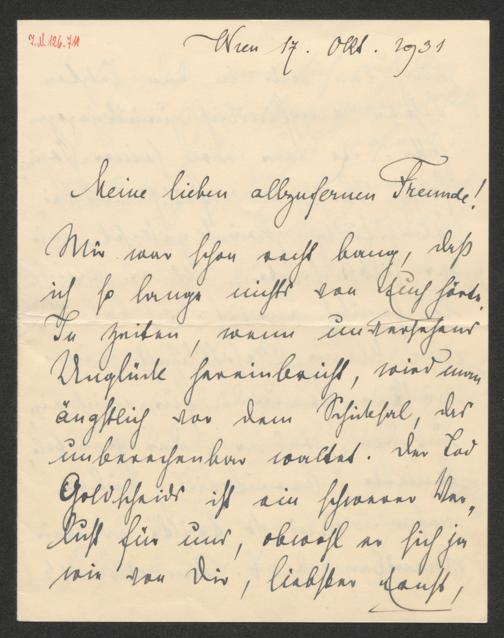 I.N. 126.711
Wien 17. Okt. 1931
Meine lieben allzufernen Freunde!
Mir war schon recht bang, daß
ich so lange nichts von Euch hörte.
In Zeiten, wenn unversehens
Unglück hereinbricht, wird man
ängstlich vor dem Schicksal, das
unberechenbar waltet. Der Tod
Goldscheids ist ein schwerer Ver-
lust für uns, obwohl er sich ja
wie von Dir, liebster Ernst,